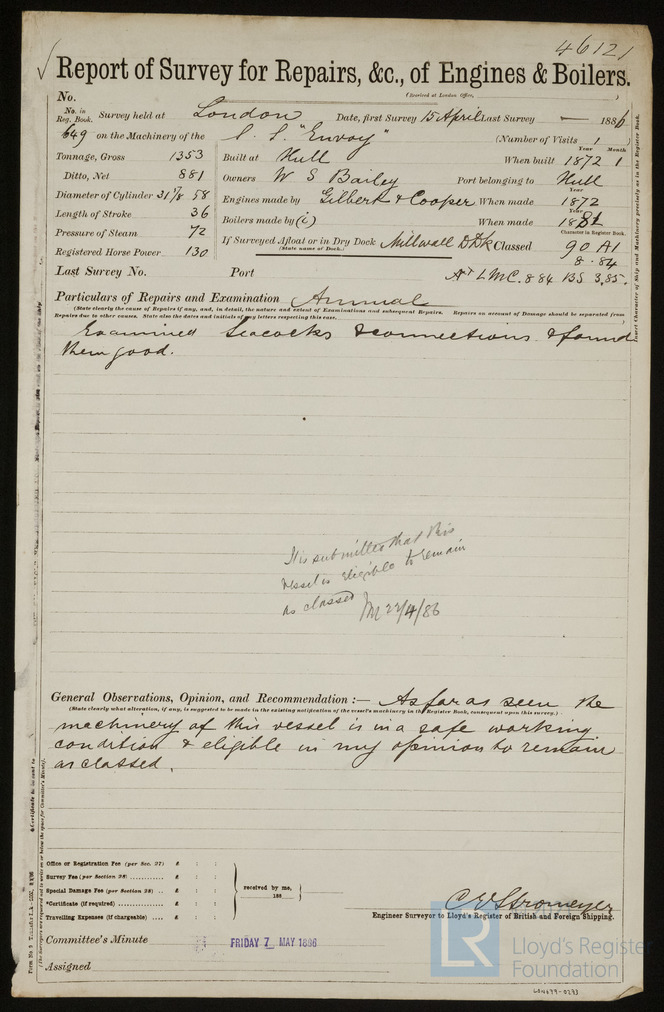 46121
Report of Survey for Repairs, &c., of Engines & Boilers.
(Received at London Office, )
No.
No. in Reg. Book. Survey held at London Date, first Survey 15 April Last Survey — 1886
649 on the Machinery of the S. S. "Envoy" (Number of Visits 1 )
Tonnage, Gross 1353 Built at Hull When built Year 1872 Month 1
Ditto, Net 881 Owners W S Bailey Port belonging to Hull
Diameter of Cylinder 31 7/8 58 Engines made by Gilbert & Cooper When made 1872
Length of Stroke 36 Boilers made by (i) When made Year 1882
Pressure of Steam 72 If Surveyed Afloat or in Dry Dock Millwall D Dk Classed Character in Register Book. 90 A1
(State name of Dock.)
Registered Horse Power 130 8.84
Last Survey No. Port A & LMC. 8 84 BS 3,85.
Particulars of Repairs and Examination Annual
(State clearly the cause of Repairs if any, and, in detail, the nature and extent of Examinations and subsequent Repairs. Repairs on account of Damage should be separated from
Repairs due to other causes. State also the dates and initials of any letters respecting this case.
Examined Seacocks & connections & found
them good.
It is submitted that this
vessel is eligible to remain
as classed 22/4/86
General Observations, Opinion, and Recommendation :— As far as seen the
(State clearly what alteration, if any, is suggested to be made in the existing notification of the vessel's machinery in the Register Book, consequent upon this survey.)
machinery of this vessel is in a safe working
condition & eligible in my opinion to remain
as classed.
Office or Registration Fee (per Sec. 27) £ : :
Survey Fee (per Section 28) £ : :
Special Damage Fee (per Section 28) £ : :
*Certificate (if required) £ : :
Travelling Expenses (if chargeable) £ : :
received by me,
188
C E Stromeyer
Engineer Surveyor to Lloyd's Register of British and Foreign Shipping.
Committee's Minute FRIDAY 7 MAY 1886
Assigned
LR Lloyd's Register
Foundation
LON699-0293
Insert Character of Ship and Machinery precisely as in the Register Book.